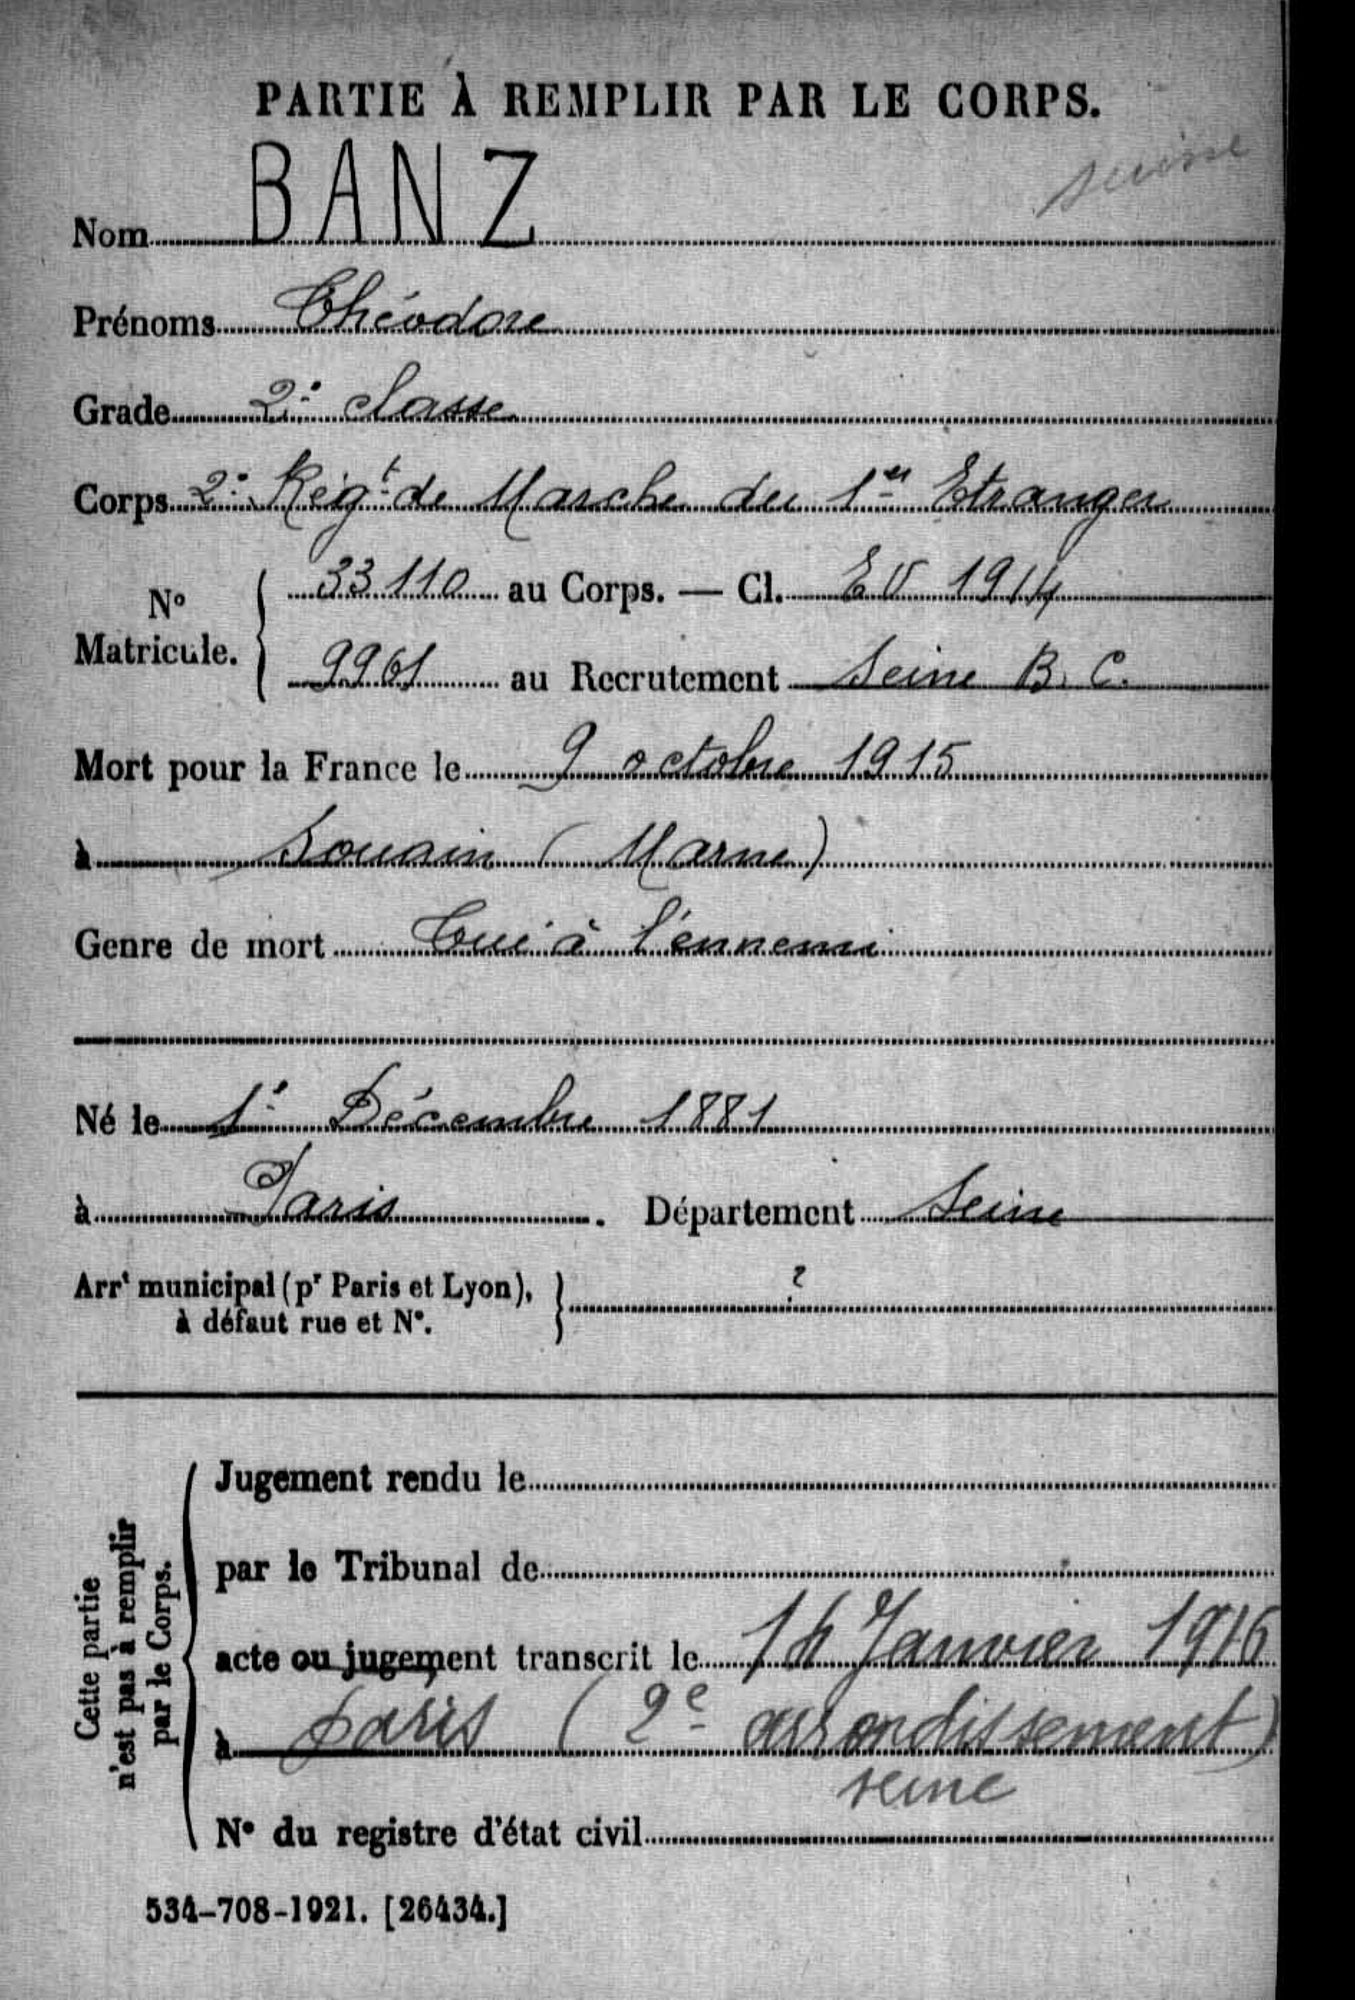 PARTIE À REMPLIR PAR LE CORPS.
suisse
Nom BANZ
Prénoms Théodore
Grade 2e classe
Corps 2e Régt de Marche du 1er Etranger
N° Matricule. 33110 au Corps. — Cl. EV 1914
9961 au Recrutement Seine B. C.
Mort pour la France le 9 octobre 1915
à Souain (Marne)
Genre de mort Tué à l'ennemi
Né le 1er Décembre 1881
à Paris . Département Seine
Arrt municipal (pr Paris et Lyon), ?
à défaut rue et N°.
Cette partie n'est pas à remplir par le Corps.
Jugement rendu le
par le Tribunal de
acte ou jugement transcrit le Janvier 1916
à Paris (2e arrondissement)
seine
N° du registre d'état civil
534-708-1921. [26434.]